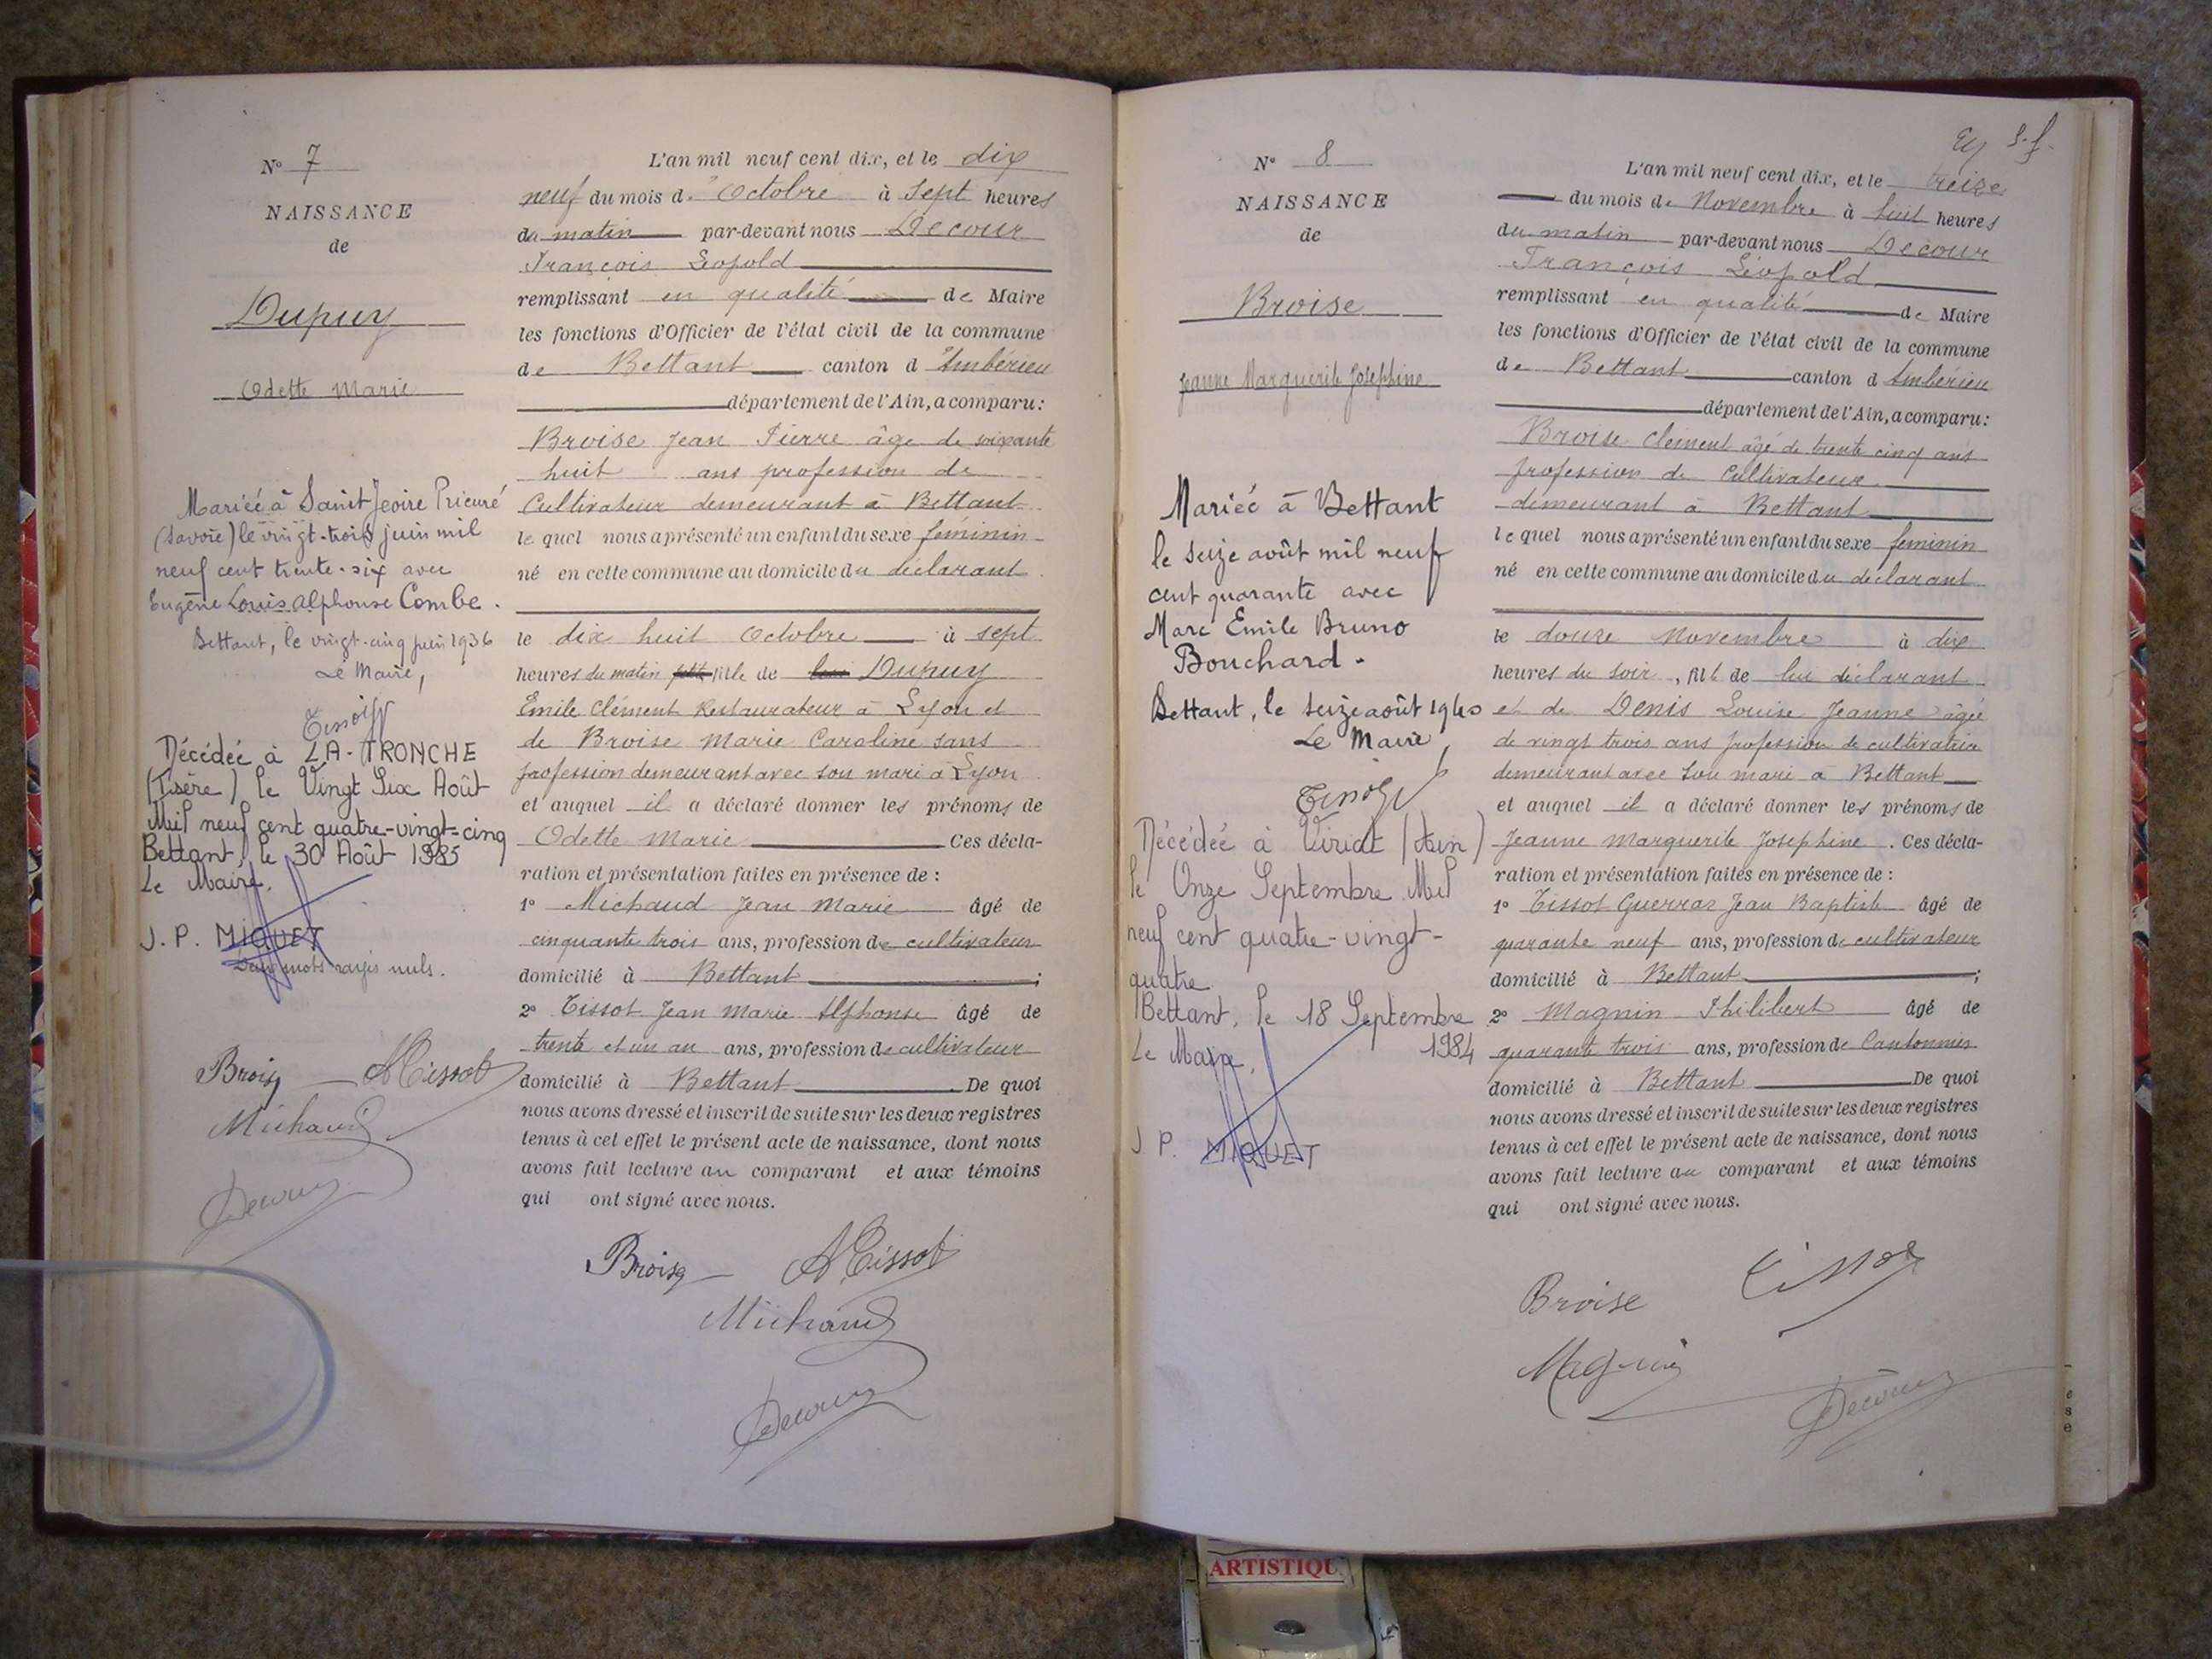 N° 7
NAISSANCE
de
Dupuy
Odette Marie
Mariéé à Saint Jeoire Prieuré
(Savoie) le vingt-trois juin mil
neuf cent trente-six avec
Eugène Louis Alphonse Combe.
Bettant, le vingt-cinq juin 1936
Le Maire,
Décédée à LA-TRONCHE
(Isère) le Vingt Six Août
Mil neuf cent quatre-vingt-cinq
Bettant, le 30 Août 1985
Le Maire,
J. P. MIQUET
Deux mots rayés nuls.
Broise A Tissot
Michaud
Decour
L'an mil neuf cent dix, et le dix
neuf du mois d'Octobre à sept heures
du matin par-devant nous Decour
François Léopold
remplissant en qualité de Maire
les fonctions d'Officier de l'état civil de la commune
de Bettant canton d'Ambérieu
département de l'Ain, a comparu:
Broise Jean Pierre âge de soixante
huit ans profession de
Cultivateur demeurant à Bettant
lequel nous a présenté un enfant du sexe féminin
né en cette commune au domicile du déclarant
le dix huit Octobre à sept
heures du matin fille de Dupuy
Emile Clément Restaurateur à Lyon et
de Broise Marie Caroline sans
profession demeurant avec son mari à Lyon
et auquel il a déclaré donner les prénoms de
Odette Marie Ces décla-
ration et présentation faites en présence de :
1° Michaud Jean Marie âgé de
cinquante trois ans, profession de cultivateur
domicilié à Bettant ;
2° Tissot Jean Marie Alphonse âgé de
trente et un an ans, profession de cultivateur
domicilié à Bettant . De quoi
nous avons dressé et inscrit de suite sur les deux registres
tenus à cet effet le présent acte de naissance, dont nous
avons fait lecture au comparant et aux témoins
qui ont signé avec nous.
Broise A Tissot
Michaud
Decour
N° 8
NAISSANCE
de
Broise
Jeanne Marguerite Joséphine
Mariéé à Bettant
le seize août mil neuf
cent quarante avec
Marc Emile Bruno
Bouchard.
Bettant, le seize août 1940
Le Maire,
Décédée à Viriat (Ain)
le Onze Septembre Mil
neuf cent quatre-vingt-
quatre
Bettant, le 18 Septembre
1984
Le Maire,
J. P. MIQUET
L'an mil neuf cent dix, et le treize
du mois de Novembre à huit heures
du matin par-devant nous Decour
François Léopold
remplissant en qualité de Maire
les fonctions d'Officier de l'état civil de la commune
de Bettant canton d'Ambérieu
département de l'Ain, a comparu:
Broise Clément âgé de trente cinq ans
profession de Cultivateur
demeurant à Bettant
lequel nous a présenté un enfant du sexe féminin
né en cette commune au domicile du déclarant
le douze Novembre à dix
heures du soir, fille de lui déclarant
et de Denis Louise Jeanne âgée
de vingt trois ans profession de cultivatrice
demeurant avec son mari à Bettant
et auquel il a déclaré donner les prénoms de
Jeanne Marguerite Joséphine . Ces décla-
ration et présentation faites en présence de :
1° Tissot Guerraz Jean Baptiste âgé de
quarante neuf ans, profession de cultivateur
domicilié à Bettant ;
2° Magnin Philibert âgé de
quarante trois ans, profession de Cantonnier
domicilié à Bettant De quoi
nous avons dressé et inscrit de suite sur les deux registres
tenus à cet effet le présent acte de naissance, dont nous
avons fait lecture au comparant et aux témoins
qui ont signé avec nous.
Broise Tissot
Magnin
Decour
ARTISTIQU